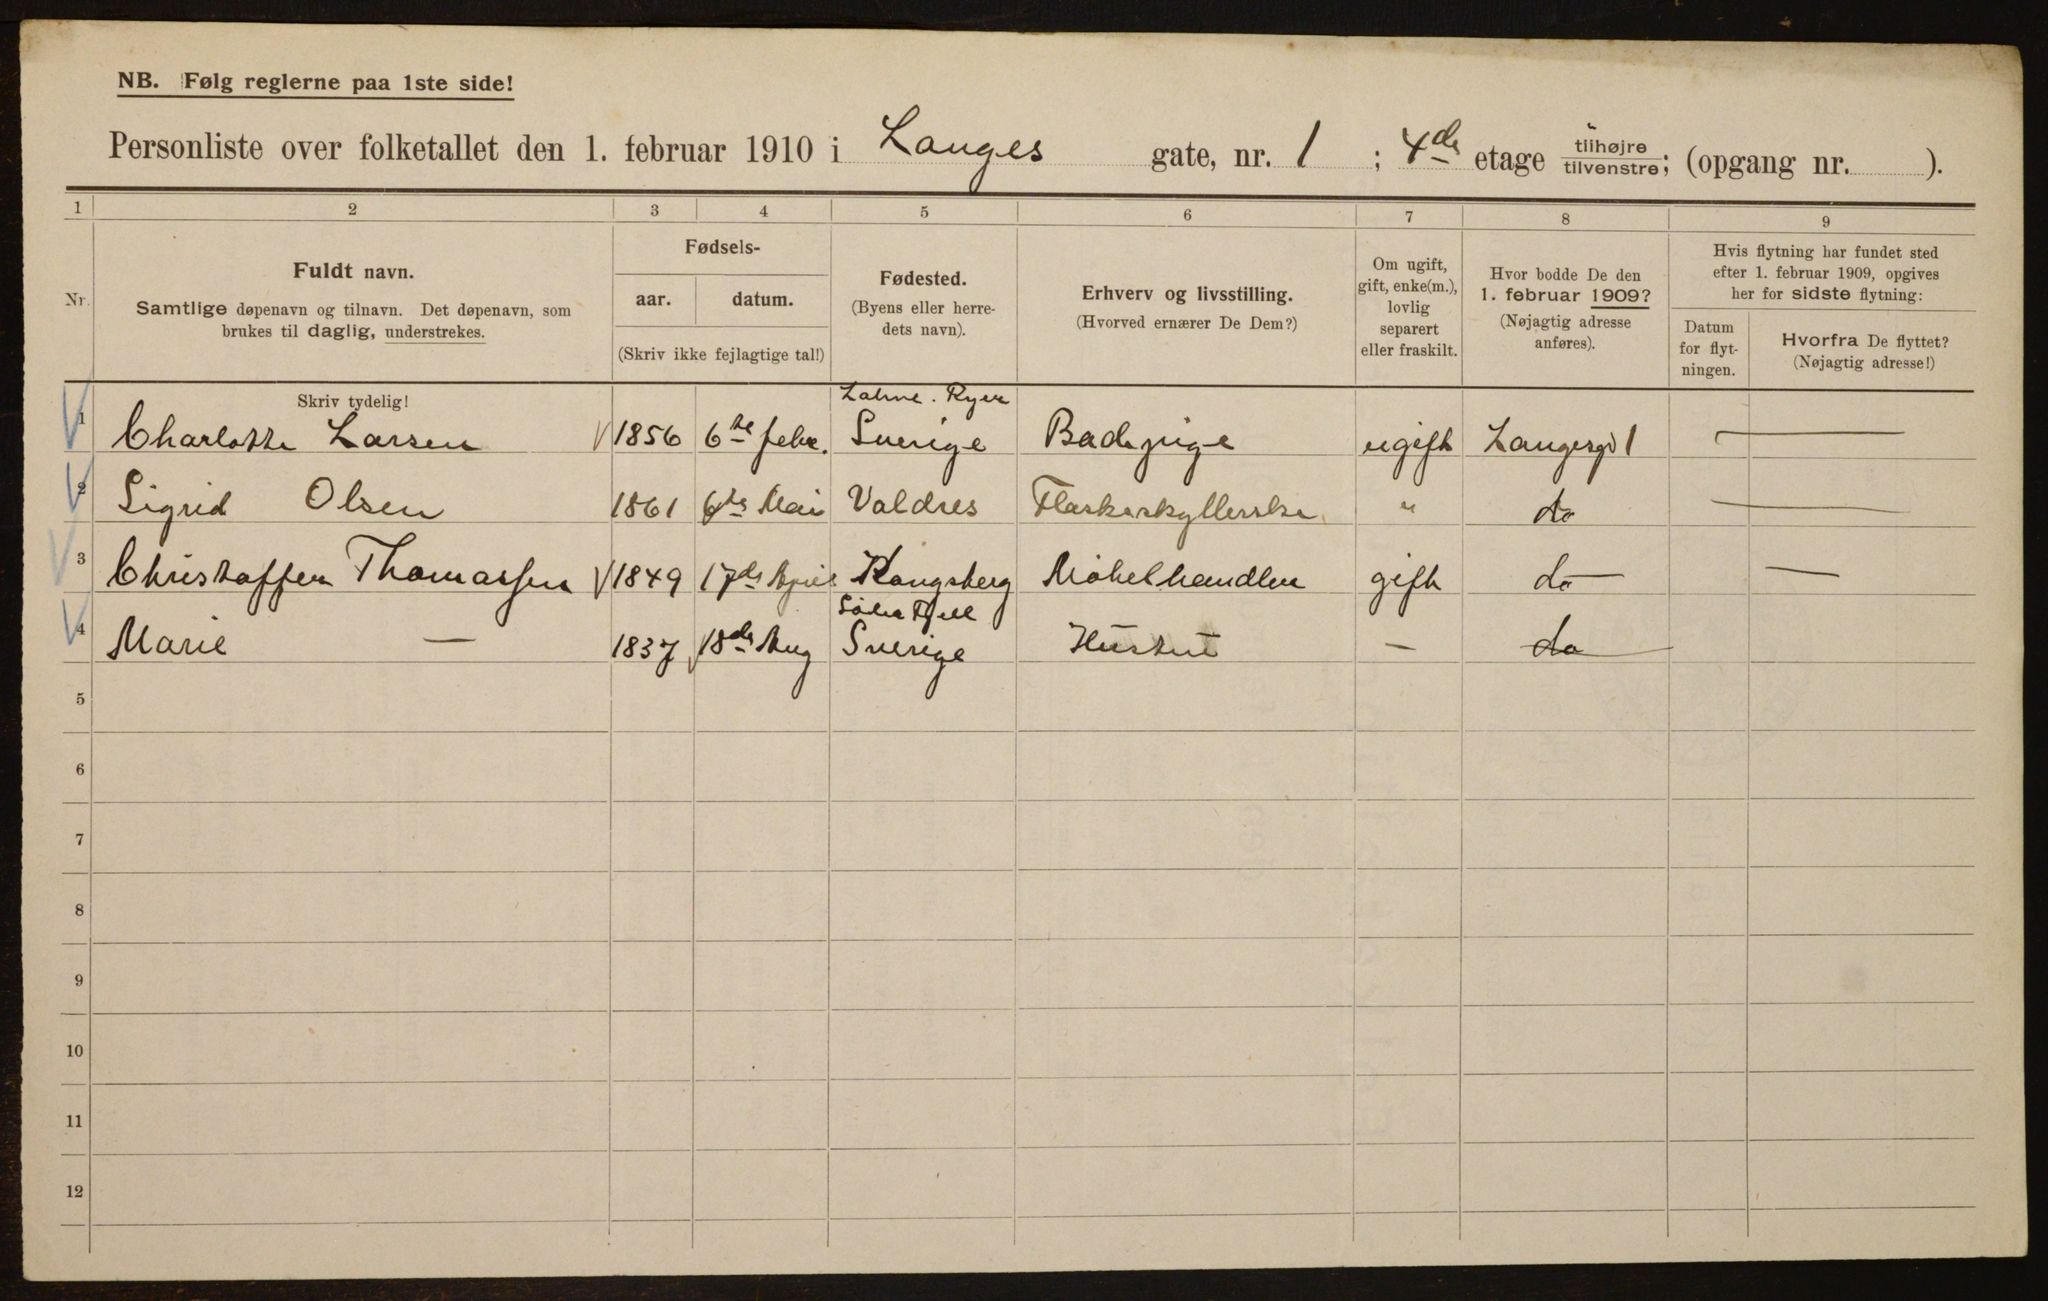 NB. Følg reglerne paa 1ste side!
Personliste over folketallet den 1. februar 1910 i Langes gate, nr. 1 ; 4de etage tilhøjre tilvenstre; (opgang nr. ).
1 2 3 4 5 6 7 8 9
Nr.
Fuldt navn.
Samtlige døpenavn og tilnavn. Det døpenavn, som
brukes til daglig, understrekes.
Fødsels-
aar. datum.
(Skriv ikke fejlagtige tal!)
Fødested.
(Byens eller herre-
dets navn).
Erhverv og livsstilling.
(Hvorved ernærer De Dem?)
Om ugift,
gift, enke(m.),
lovlig
separert
eller fraskilt.
Hvor bodde De den
1. februar 1909?
(Nøjagtig adresse
anføres).
Hvis flytning har fundet sted
efter 1. februar 1909, opgives
her for sidste flytning:
Datum
for flyt-
ningen.
Hvorfra De flyttet?
(Nøjagtig adresse!)
Skriv tydelig!
1 Charlotte Larsen 1856 6te febr. Sverige Badepige ugift Langesgd 1 —
2 Sigrid Olsen 1861 6te Mai Valdres Flaskeskyllerske " do —
3 Christoffer Thomassen 1849 17de April Kongsberg Møbelhandler gift do —
4 Marie — 1837 18de Aug Sverige Hustru — do
5
6
7
8
9
10
11
12